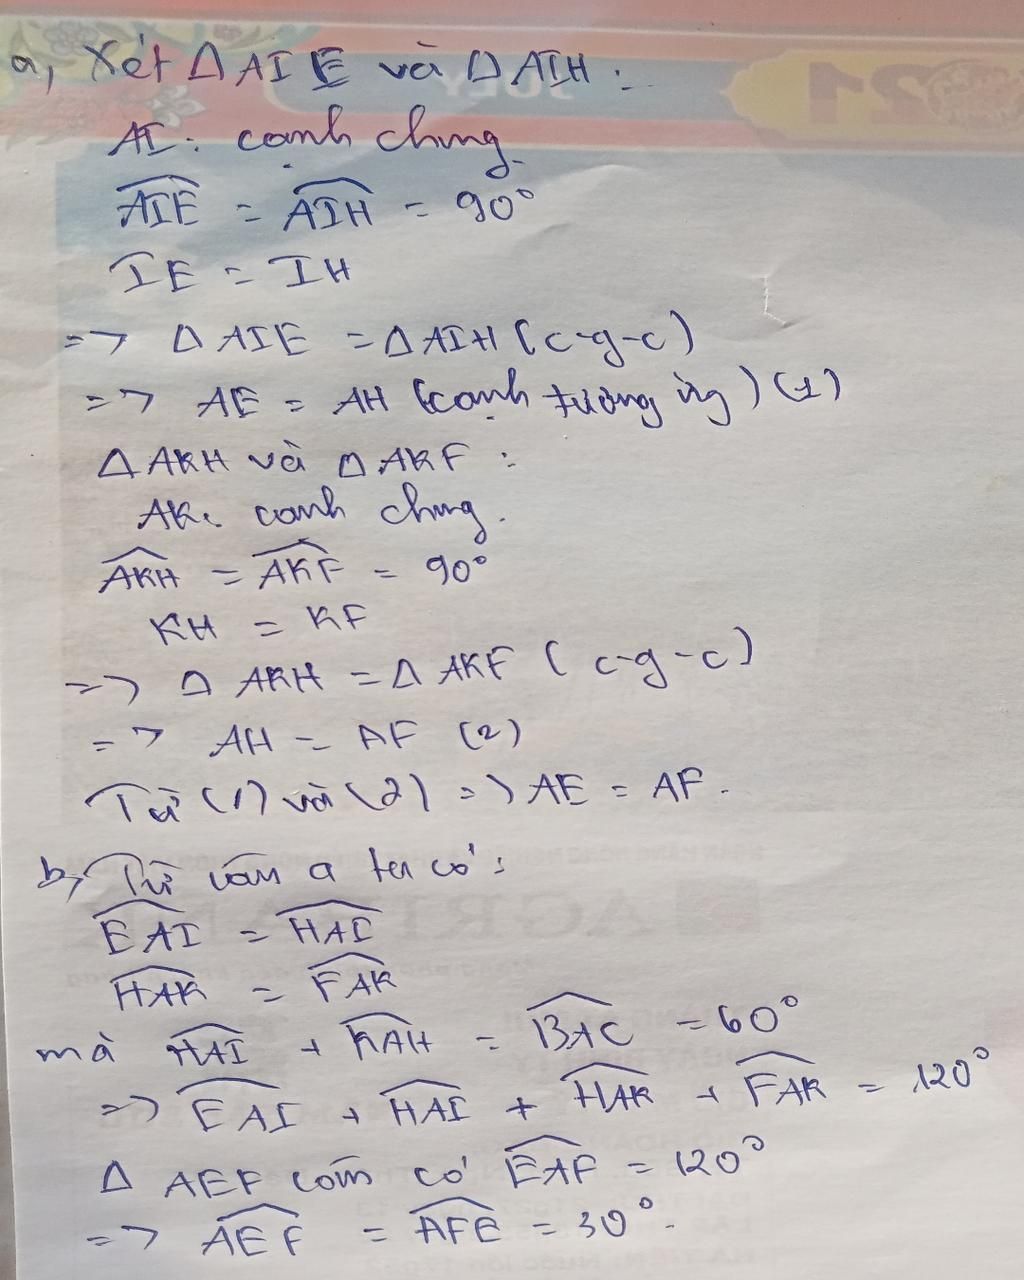 a, Xét Δ AIE và Δ AIH :
AI : cạnh chung.
AIE = AIH = 90°
IE = IH
=> Δ AIE = Δ AIH (c-g-c)
=> AE = AH (cạnh tương ứng) (1)
Δ AKH và Δ AKF :
AK: canh chung.
AKH = AKF = 90°
KH = KF
=> Δ AKH = Δ AKF (c-g-c)
=> AH = AF (2)
Từ (1) và (2) => AE = AF.
b, Từ câu a ta có :
EAI = HAI
HAK = FAK
mà HAI + KAH = BAC = 60°
=> EAI + HAI + HAK + FAK = 120°
Δ AEF cân có EAF = 120°
=> AEF = AFE = 30°.